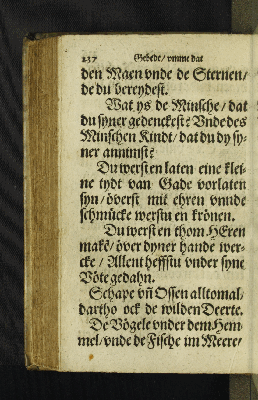 237 Gebede/ vmme dat
den Maen vnde de Sternen/
de du bereydest.
Wat ys de Minsche/ dat
du syner gedenckest? Vnde des
Minschen Kindt/ dat du dy sy-
ner annimst?
Du werst en laten eine klei-
ne tydt van Gade vorlaten
syn/ överst mit ehren vnnde
schmücke werstu en krönen.
Du werst en thom HEren
makē/ över dyner hande wer-
cke/ Allent heffstu vnder syne
Vöte gedahn.
Schape vñ Ossen alltomal/
dartho ock de wilden Deerte.
De Vögele vnder dem Hem-
mel/ vnde de Fische im Meere/